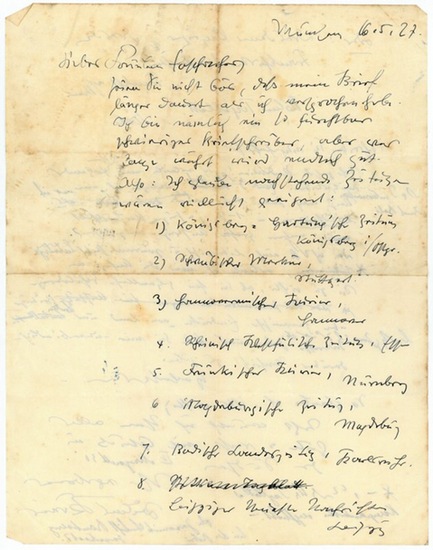 München 6.5.27
Lieber
seien Sie nicht böse, daß mein Brief
länger dauert als ich versprochen habe.
Ich bin nämlich ein so furchtbar
schwieriger Briefschreiber, aber was
lange währt wird endlich gut.
Also: Ich glaube nachstehende Zeitungen
wären vielleicht geeignet:
1) Königsberg: Hartung'sche Zeitung
Königsberg i/Opr.
2) Schwäbischer Merkur,
Stuttgart.
3) Hannoverscher Kurier,
Hannover
4. Rheinisch Westfälische Zeitung, Essen
5. Fränkischer Kurier, Nürnberg
6 Magdeburgische Zeitung,
Magdeburg
7. Badische Landeszeitung, Karlsruhe.
8.
Leipziger Neueste Nachrichten
Leipzig